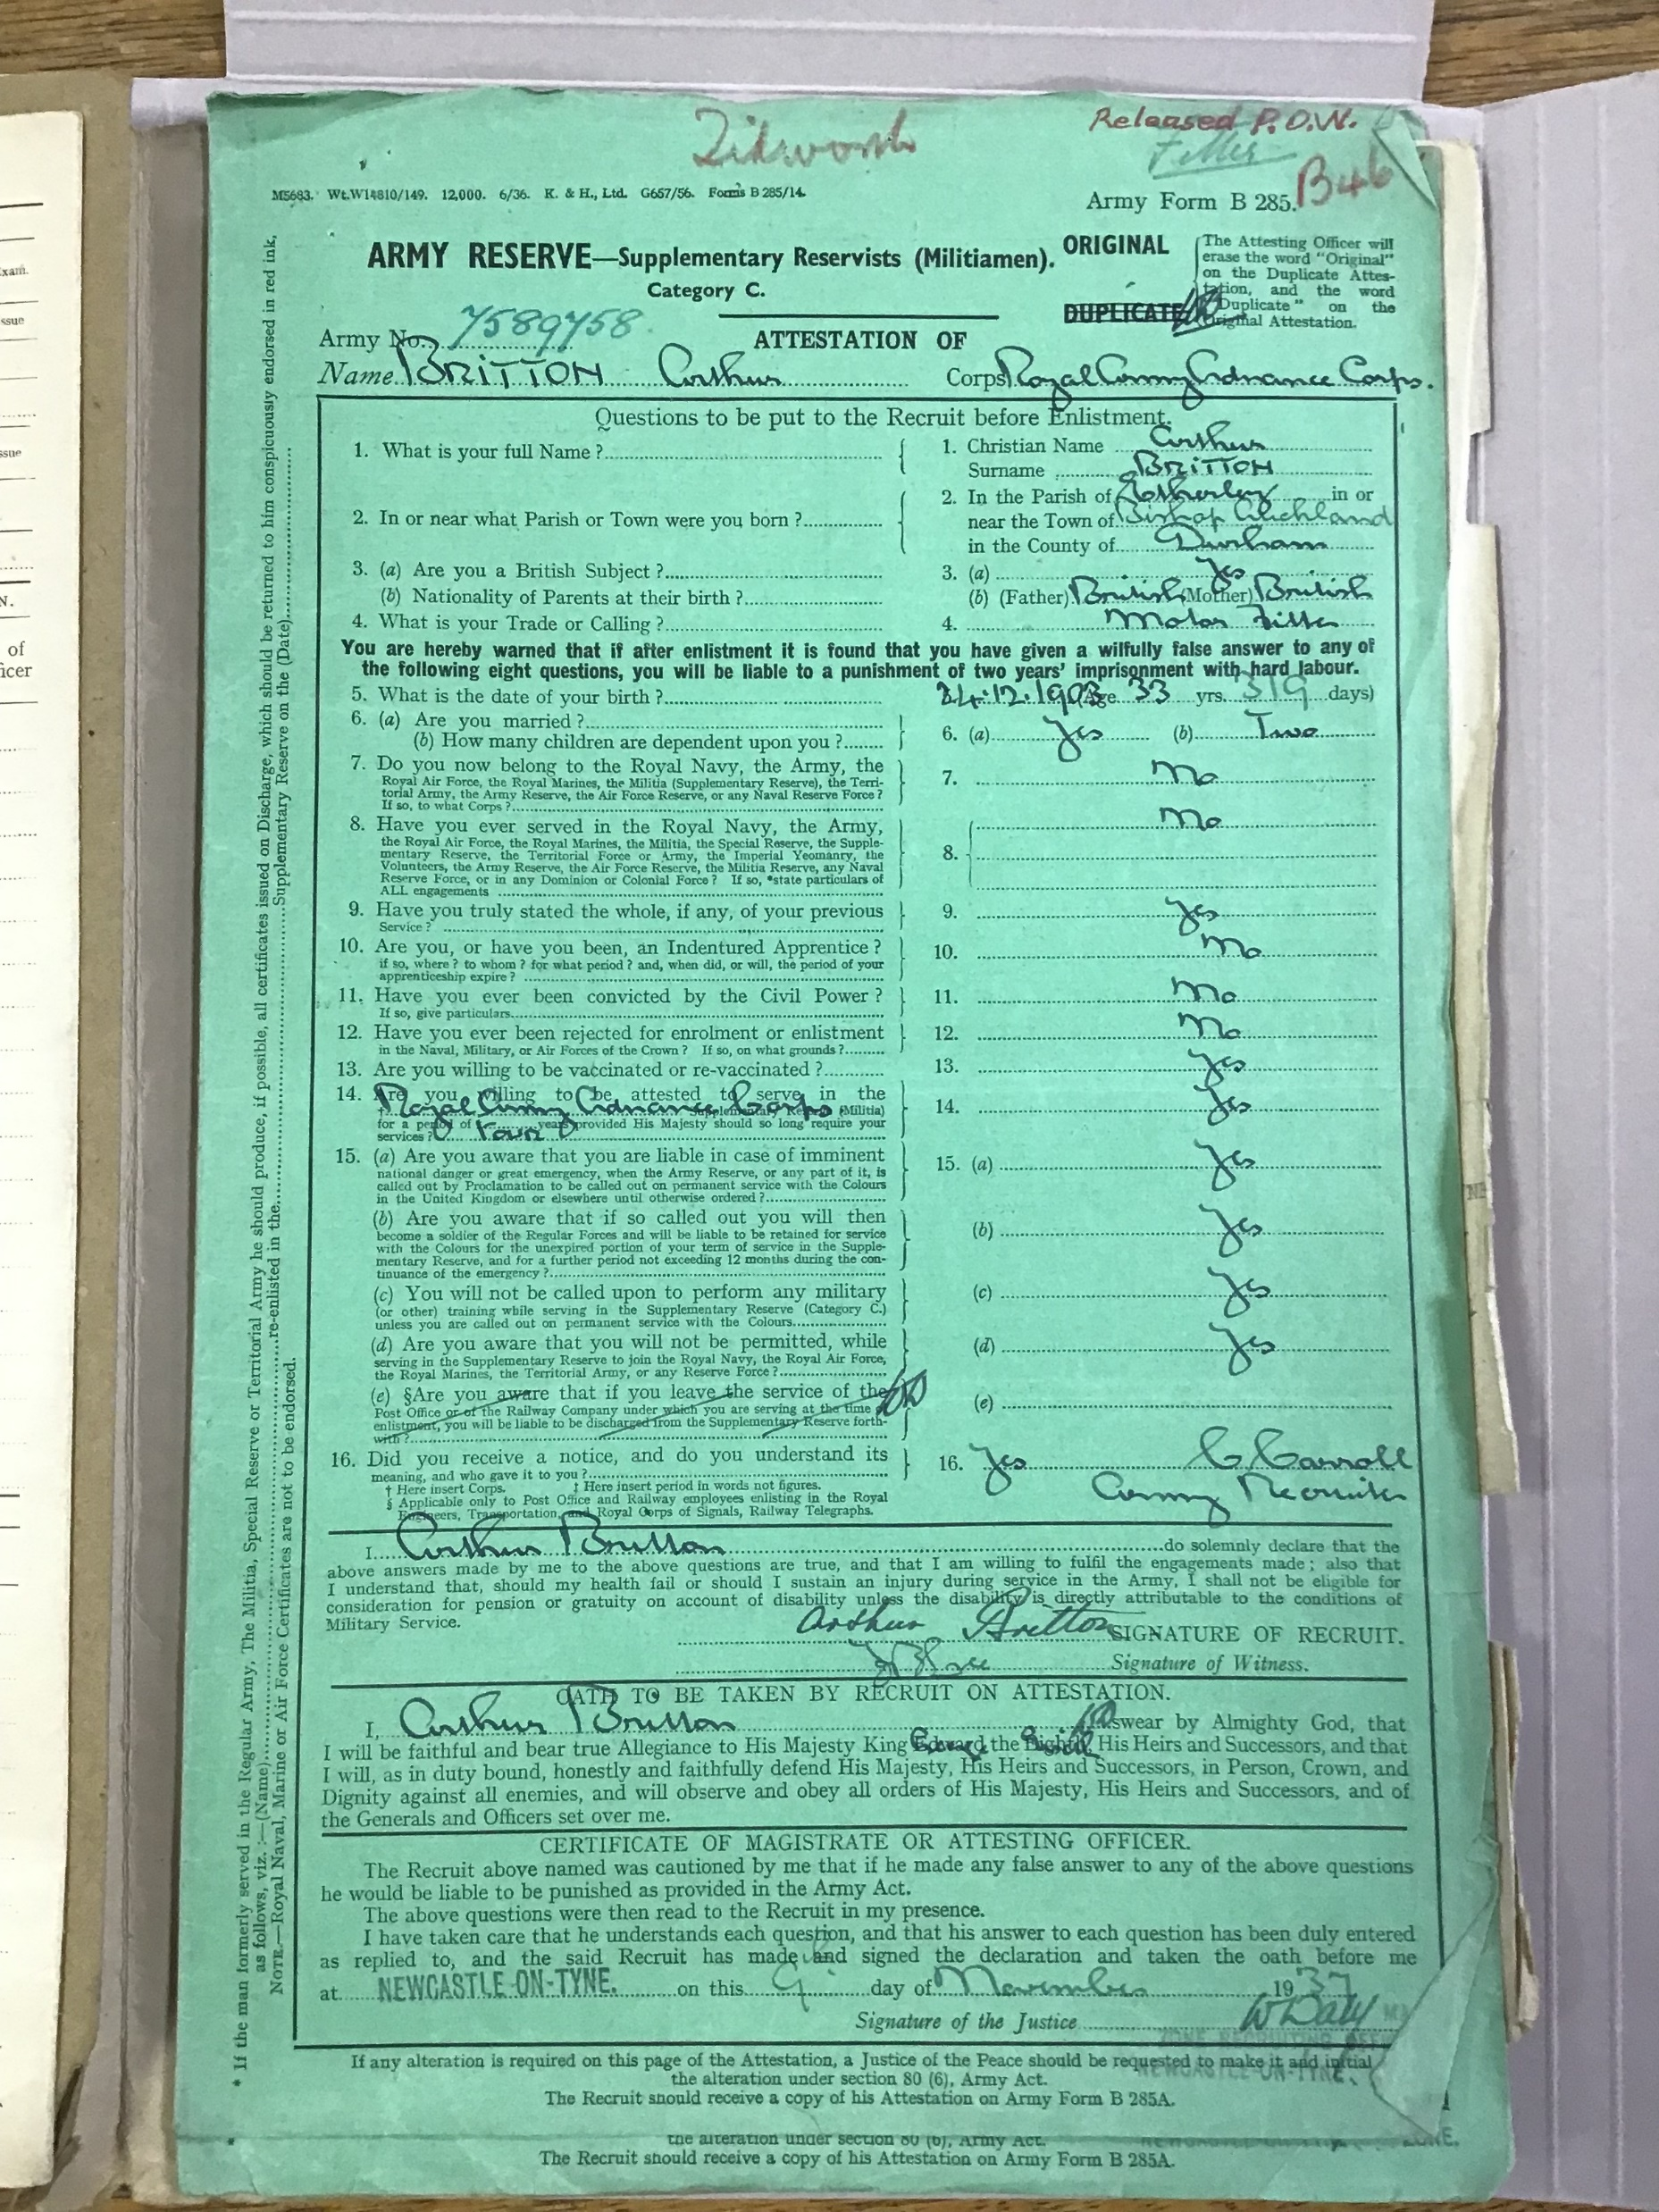 Tidworth
Released P.O.W.
Fitter
B46
M5683. Wt.W14810/149. 12,000. 6/36. K. & H., Ltd. G657/56. Forms B 285/14.
Army Form B 285.
ARMY RESERVE—Supplementary Reservists (Militiamen).
Category C.
ORIGINAL
DUPLICATE
The Attesting Officer will
erase the word "Original"
on the Duplicate Attes-
tation, and the word
"Duplicate" on the
Original Attestation.
Army No. 7589758.
ATTESTATION OF
Name BRITTON Arthur Corps Royal Army Ordnance Corps.
Questions to be put to the Recruit before Enlistment.
1. What is your full Name ? 1. Christian Name Arthur
Surname BRITTON
2. In or near what Parish or Town were you born ? 2. In the Parish of Etherley in or
near the Town of Bishop Auckland
in the County of Durham
3. (a) Are you a British Subject ? 3. (a) Yes
(b) Nationality of Parents at their birth ? (b) (Father) British (Mother) British
4. What is your Trade or Calling ? 4. Motor Fitter
You are hereby warned that if after enlistment it is found that you have given a wilfully false answer to any of
the following eight questions, you will be liable to a punishment of two years' imprisonment with hard labour.
5. What is the date of your birth ? 24.12.1903 (Age 33 yrs. 319 days)
6. (a) Are you married ? 6. (a) Yes (b) Two
(b) How many children are dependent upon you ?
7. Do you now belong to the Royal Navy, the Army, the 7. No
Royal Air Force, the Royal Marines, the Militia (Supplementary Reserve), the Terri-
torial Army, the Army Reserve, the Air Force Reserve, or any Naval Reserve Force ?
If so, to what Corps ?
8. Have you ever served in the Royal Navy, the Army, 8. No
the Royal Air Force, the Royal Marines, the Militia, the Special Reserve, the Supple-
mentary Reserve, the Territorial Force or Army, the Imperial Yeomanry, the
Volunteers, the Army Reserve, the Air Force Reserve, the Militia Reserve, any Naval
Reserve Force, or in any Dominion or Colonial Force ? If so, *state particulars of
ALL engagements
9. Have you truly stated the whole, if any, of your previous 9. Yes
Service ?
10. Are you, or have you been, an Indentured Apprentice ? 10. No
if so, where ? to whom ? for what period ? and, when did, or will, the period of your
apprenticeship expire ?
11. Have you ever been convicted by the Civil Power ? 11. No
If so, give particulars
12. Have you ever been rejected for enrolment or enlistment 12. No
in the Naval, Military, or Air Forces of the Crown ? If so, on what grounds ?
13. Are you willing to be vaccinated or re-vaccinated ? 13. Yes
14. Are you willing to be attested to serve in the 14. Yes
† Royal Army Ordnance Corps Supplementary Reserve (Militia)
for a period of Four years provided His Majesty should so long require your
services ?
15. (a) Are you aware that you are liable in case of imminent 15. (a) Yes
national danger or great emergency, when the Army Reserve, or any part of it, is
called out by Proclamation to be called out on permanent service with the Colours
in the United Kingdom or elsewhere until otherwise ordered ?
(b) Are you aware that if so called out you will then (b) Yes
become a soldier of the Regular Forces and will be liable to be retained for service
with the Colours for the unexpired portion of your term of service in the Supple-
mentary Reserve, and for a further period not exceeding 12 months during the con-
tinuance of the emergency ?
(c) You will not be called upon to perform any military (c) Yes
(or other) training while serving in the Supplementary Reserve (Category C.)
unless you are called out on permanent service with the Colours
(d) Are you aware that you will not be permitted, while (d) Yes
serving in the Supplementary Reserve to join the Royal Navy, the Royal Air Force,
the Royal Marines, the Territorial Army, or any Reserve Force ?
(e) §Are you aware that if you leave the service of the (e)
Post Office or of the Railway Company under which you are serving at the time of
enlistment, you will be liable to be discharged from the Supplementary Reserve forth-
with ?
16. Did you receive a notice, and do you understand its 16. Yes C Carroll
meaning, and who gave it to you ? Army Recruiter
† Here insert Corps. ‡ Here insert period in words not figures.
§ Applicable only to Post Office and Railway employees enlisting in the Royal
Engineers, Transportation, and Royal Corps of Signals, Railway Telegraphs.
I Arthur Britton do solemnly declare that the
above answers made by me to the above questions are true, and that I am willing to fulfil the engagements made ; also that
I understand that, should my health fail or should I sustain an injury during service in the Army, I shall not be eligible for
consideration for pension or gratuity on account of disability unless the disability is directly attributable to the conditions of
Military Service.
Arthur Britton SIGNATURE OF RECRUIT.
Signature of Witness.
OATH TO BE TAKEN BY RECRUIT ON ATTESTATION.
I, Arthur Britton swear by Almighty God, that
I will be faithful and bear true Allegiance to His Majesty King Edward George the Eighth Sixth His Heirs and Successors, and that
I will, as in duty bound, honestly and faithfully defend His Majesty, His Heirs and Successors, in Person, Crown, and
Dignity against all enemies, and will observe and obey all orders of His Majesty, His Heirs and Successors, and of
the Generals and Officers set over me.
CERTIFICATE OF MAGISTRATE OR ATTESTING OFFICER.
The Recruit above named was cautioned by me that if he made any false answer to any of the above questions
he would be liable to be punished as provided in the Army Act.
The above questions were then read to the Recruit in my presence.
I have taken care that he understands each question, and that his answer to each question has been duly entered
as replied to, and the said Recruit has made and signed the declaration and taken the oath before me
at NEWCASTLE-ON-TYNE. on this 9 day of November 1937
Signature of the Justice
ZONE RECRUITING
NEWCASTLE-ON-TYNE.
If any alteration is required on this page of the Attestation, a Justice of the Peace should be requested to make it and initial
the alteration under section 80 (6), Army Act.
The Recruit should receive a copy of his Attestation on Army Form B 285A.
the alteration under section 80 (6), Army Act.
The Recruit should receive a copy of his Attestation on Army Form B 285A.
* If the man formerly served in the Regular Army, The Militia, Special Reserve or Territorial Army he should produce, if possible, all certificates issued on Discharge, which should be returned to him conspicuously endorsed in red ink,
as follows, viz. :—(Name) re-enlisted in the Supplementary Reserve on the (Date)
NOTE.—Royal Naval, Marine or Air Force Certificates are not to be endorsed.